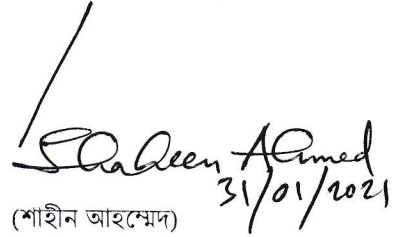 Shaheen Ahmed
31/01/2021
(শাহীন আহম্মেদ)